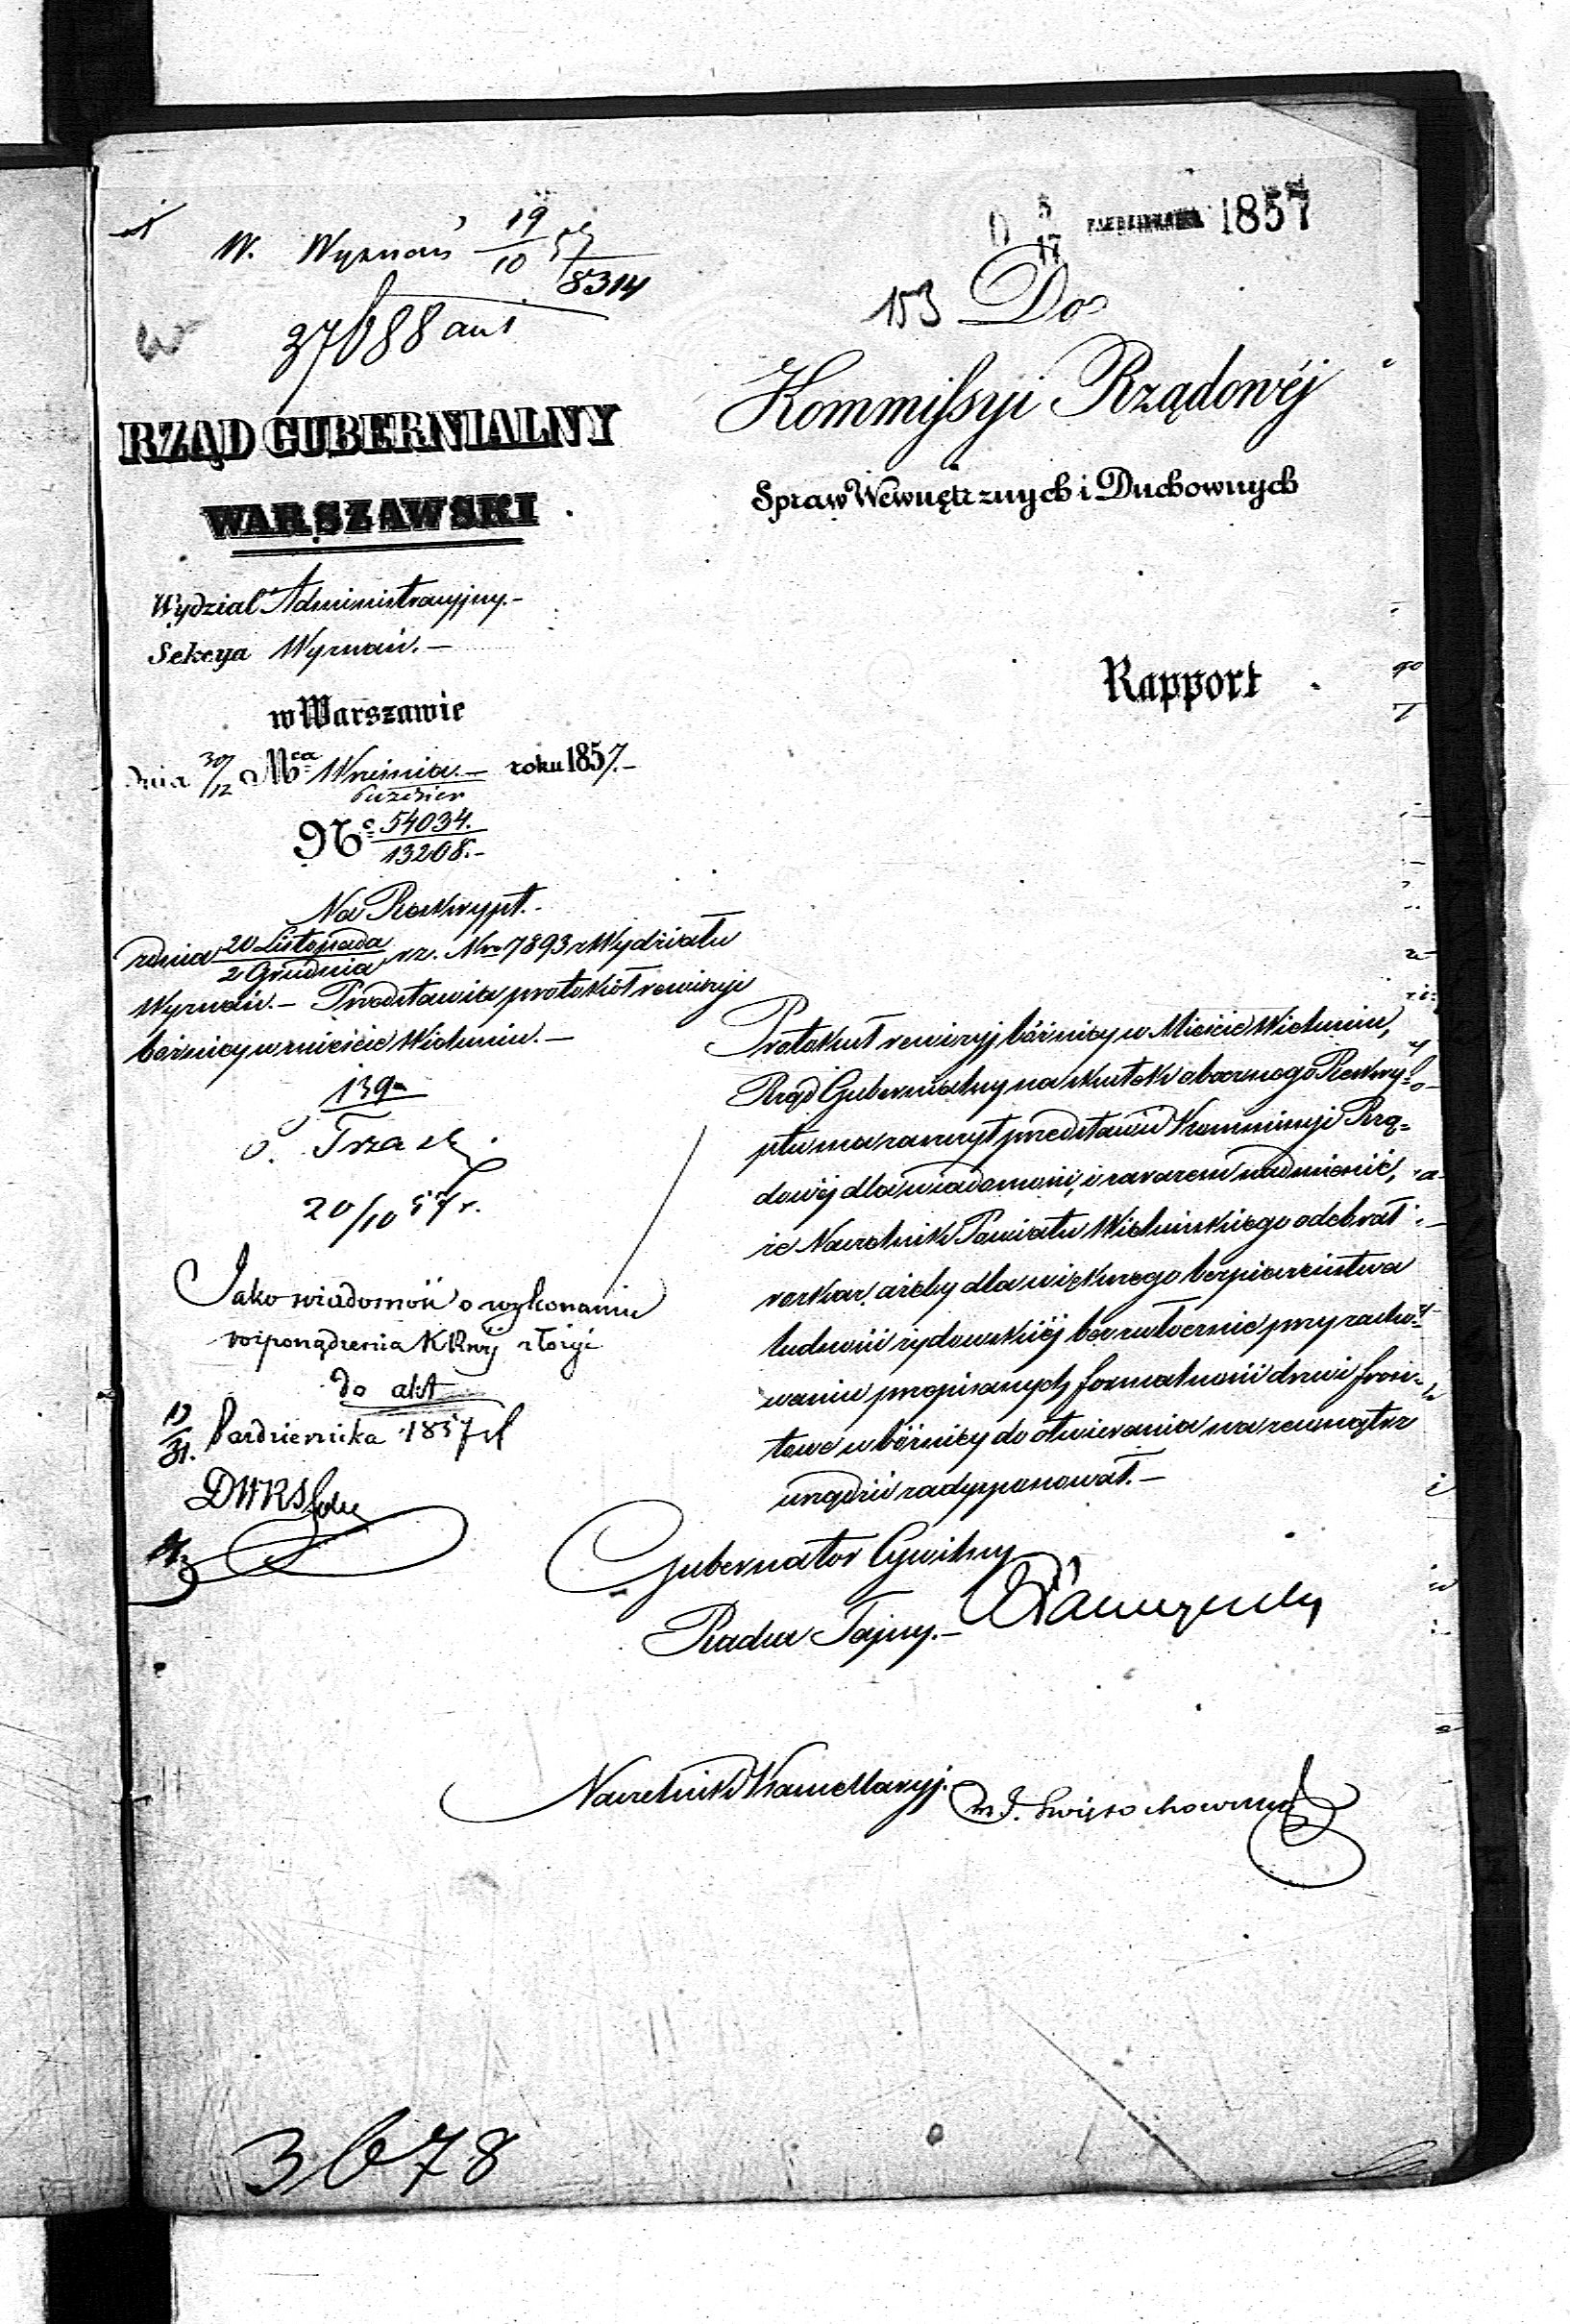 W. Wyznań 19/10 57
8314
37688 aus
RZĄD GUBERNIALNY
WARSZAWSKI
Wydział Administracyjny.-
Sekcya Wyznań.-
w Warszawie
Dnia 30/12 Mca Września.- roku 1857.-
Paździer
No 54034.
13208.-
Na Reskrypt.-
z dnia 20 Listopada / 2 Grudnia r.z. Nro 7893 z Wydziału
Wyznań.- Przedstawia protokół rewizyi
bóżnicy w mieście Wieluniu.-
139
20/10 57 r.
Jako wiadomość o wykonaniu
rozporządzenia KRwój złożyć
do akt
19/31. Października 1857 r
5/17 PAŹDZIERNIKA 1857
153 Do
Kommissyi Rządowéj
Spraw Wewnętrznych i Duchownych
Rapport
Protokuł rewizyj bóżnicy w Mieście Wieluniu,
Rząd Gubernialny na skutek obocznego Reskry=
ptu ma zaszczyt przedstawić Kommissyi Rzą=
dowéj dla wiadomości, i zarazem nadmienić,
że Naczelnik Powiatu Wieluńskiego odebrał
rozkaz, ażeby dla większego bezpieczeństwa
ludności żydowskiéj bezzwłocznie przy zacho=
waniu przepisanych formalności drzwi fron=
towe w bóżnicy do otwierania na zewnątrz
urządzić zadysponował.-
Gubernator Cywilny
Radca Tajny.-
Naczelnik Kancellaryj.
3678